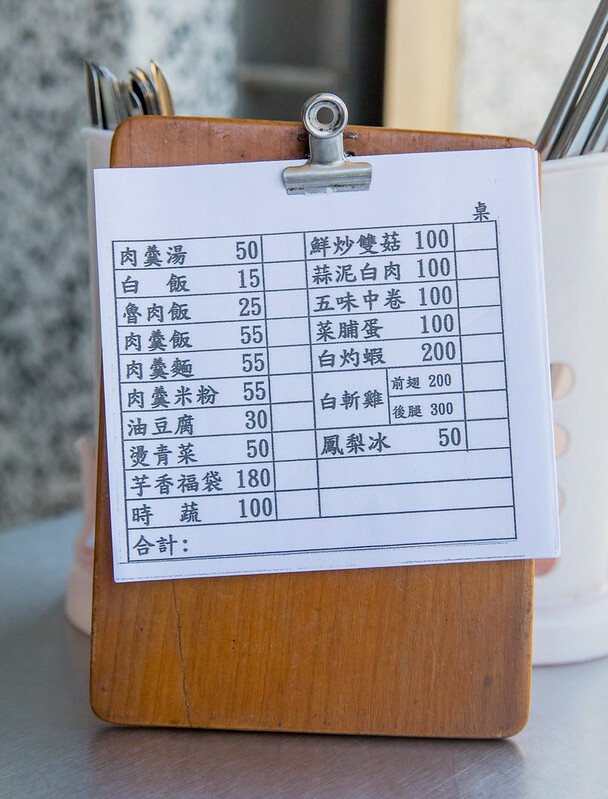 桌
肉羹湯 50
白 飯 15
魯肉飯 25
肉羹飯 55
肉羹麵 55
肉羹米粉 55
油豆腐 30
燙青菜 50
芋香福袋 180
時 蔬 100
鮮炒雙菇 100
蒜泥白肉 100
五味中卷 100
菜脯蛋 100
白灼蝦 200
白斬雞 前翅 200
後腿 300
鳳梨冰 50
合計: